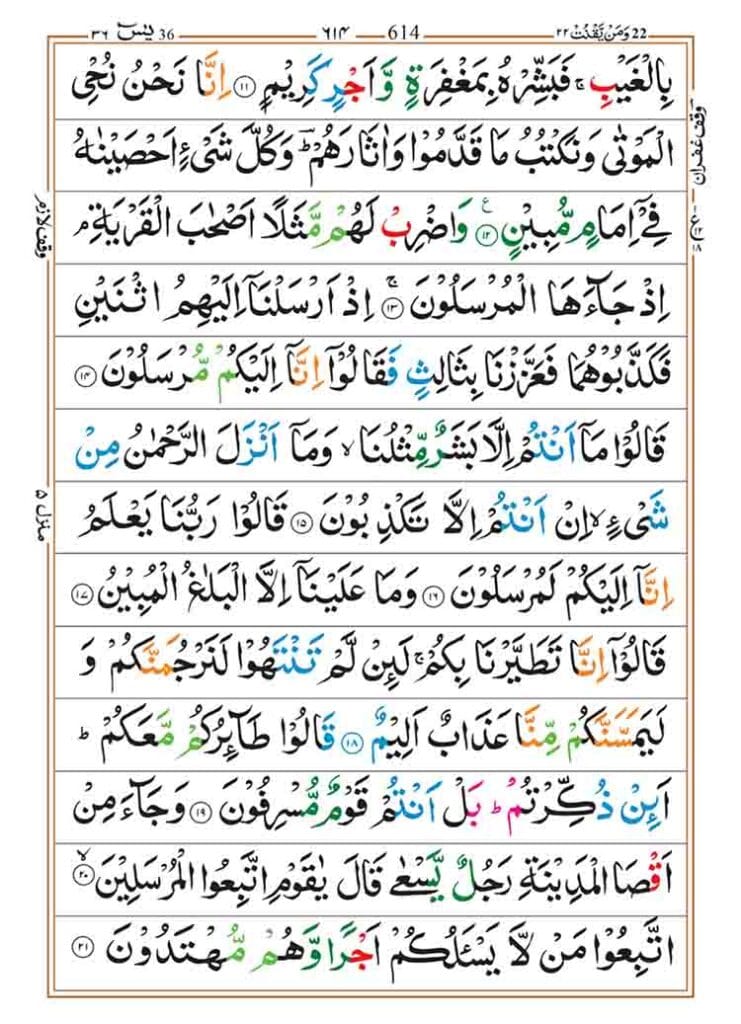 36 يٰسٓ ٣٦
614 ٦١٤
22 وَمَنْ يَّقْنُتْ ٢٢
بِالْغَيْبِ ۚ فَبَشِّرْهُ بِمَغْفِرَةٍ وَّاَجْرٍ كَرِيْمٍ ۝۱۱ اِنَّا نَحْنُ نُحْيِ
الْمَوْتٰى وَنَكْتُبُ مَا قَدَّمُوْا وَاٰثَارَهُمْ ؕ وَكُلَّ شَىْءٍ اَحْصَيْنٰهُ
فِىْۤ اِمَامٍ مُّبِيْنٍ ۝۱۲ وَاضْرِبْ لَهُمْ مَّثَلًا اَصْحٰبَ الْقَرْيَةِ ۘ
اِذْ جَآءَهَا الْمُرْسَلُوْنَ ۝۱۳ اِذْ اَرْسَلْنَاۤ اِلَيْهِمُ اثْنَيْنِ
فَكَذَّبُوْهُمَا فَعَزَّزْنَا بِثَالِثٍ فَقَالُوْۤا اِنَّاۤ اِلَيْكُمْ مُّرْسَلُوْنَ ۝۱۴
قَالُوْا مَاۤ اَنْتُمْ اِلَّا بَشَرٌ مِّثْلُنَا ۙ وَمَاۤ اَنْزَلَ الرَّحْمٰنُ مِنْ
شَىْءٍ ۙ اِنْ اَنْتُمْ اِلَّا تَكْذِبُوْنَ ۝۱۵ قَالُوْا رَبُّنَا يَعْلَمُ
اِنَّاۤ اِلَيْكُمْ لَمُرْسَلُوْنَ ۝۱۶ وَمَا عَلَيْنَاۤ اِلَّا الْبَلٰغُ الْمُبِيْنُ ۝۱۷
قَالُوْۤا اِنَّا تَطَيَّرْنَا بِكُمْ ۚ لَئِنْ لَّمْ تَنْتَهُوْا لَنَرْجُمَنَّكُمْ وَ
لَيَمَسَّنَّكُمْ مِّنَّا عَذَابٌ اَلِيْمٌ ۝۱۸ قَالُوْا طَآئِرُكُمْ مَّعَكُمْ ؕ
اَئِنْ ذُكِّرْتُمْ ؕ بَلْ اَنْتُمْ قَوْمٌ مُّسْرِفُوْنَ ۝۱۹ وَجَآءَ مِنْ
اَقْصَا الْمَدِيْنَةِ رَجُلٌ يَّسْعٰى قَالَ يٰقَوْمِ اتَّبِعُوا الْمُرْسَلِيْنَ ۙ ۝۲۰
اتَّبِعُوْا مَنْ لَّا يَسْـَٔلُكُمْ اَجْرًا وَّهُمْ مُّهْتَدُوْنَ ۝۲۱
وقف غفران
وقف لازم
منزل ۵